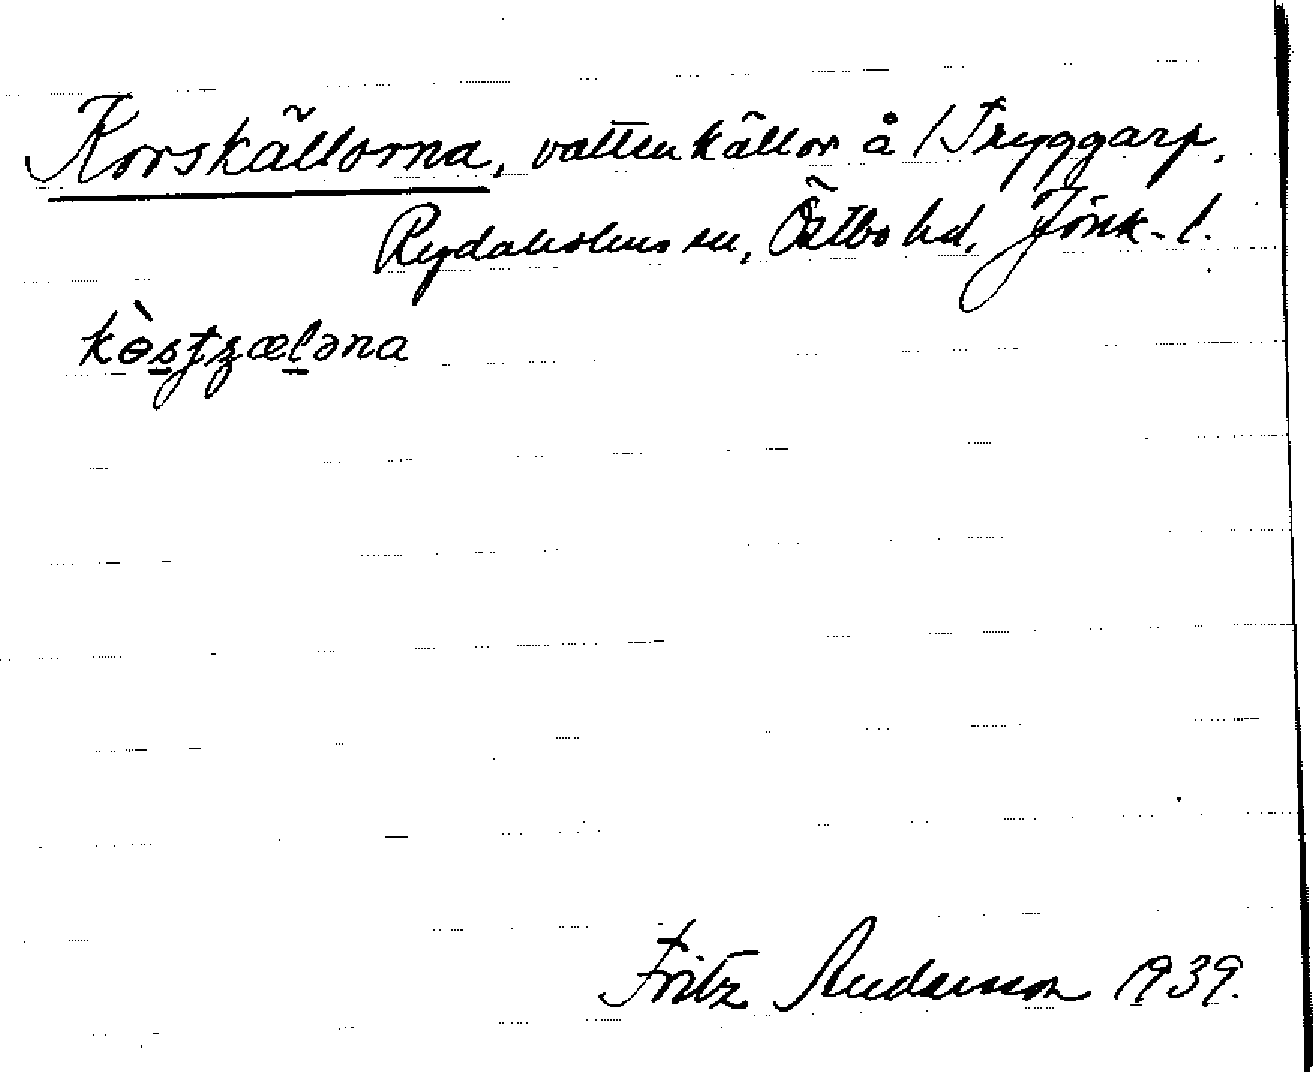 Korskällorna, vattenkällor å Tryggarp,
Rydaholms sn, Östbo hd, Jönk. l.
kòsʈʂæləna
Fritz Andersson 1939.